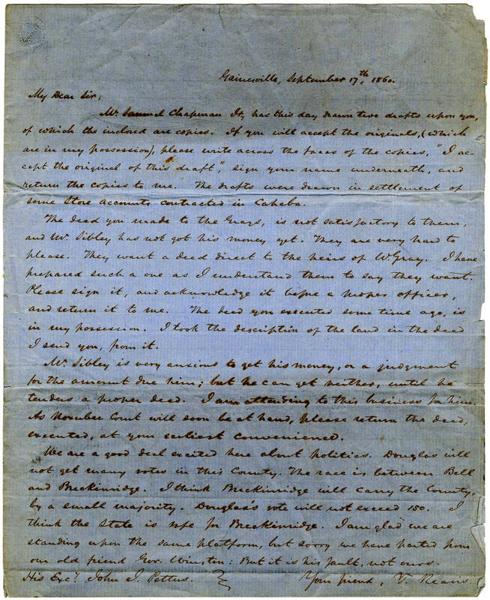 Gainesville, September 17th, 1860.
My Dear Sir,
Mr. Samuel Chapman Jr, has this day drawn two drafts upon you,
of which the inclosed are copies. If you will accept the originals, (which
are in my possession), please write across the faces of the copies, "I ac-
cept the original of this draft", sign your name underneath, and
return the copies to me. The drafts were drawn in settlement of
some Store accounts contracted in Cahaba.
The deed you made to the Grays, is not satisfactory to them,
and Mr. Sibley has not got his money yet. They are very hard to
please. They want a deed direct to the heirs of W Gray. I have
prepared such a one as I understand them to say they want.
Please sign it, and acknowledge it before a proper officer,
and return it to me. The deed you executed some time ago, is
in my possession. I took the description of the land in the deed
I send you, from it.
Mr. Sibley is very anxious to get his money, or a judgment
for the amount due him; but he can get neither, until he
tenders a proper deed. I am attending to this business for him.
As Novmber Court will soon be at hand, please return the deed,
executed, at your earliest convenience.
We are a good deal excited here about politics. Douglas will
not get many votes in this County. The race is between Bell
and Breckinridge. I think Breckinridge will carry the County,
by a small majority. Douglas's vote will not exceed 150. I
think the State is safe for Breckinridge. I am glad we are
standing upon the same platform, but sorry we have parted from
our old friend Gov. Winston: But it is his fault, not ours.
His Excy. John J. Pettus. Your friend,